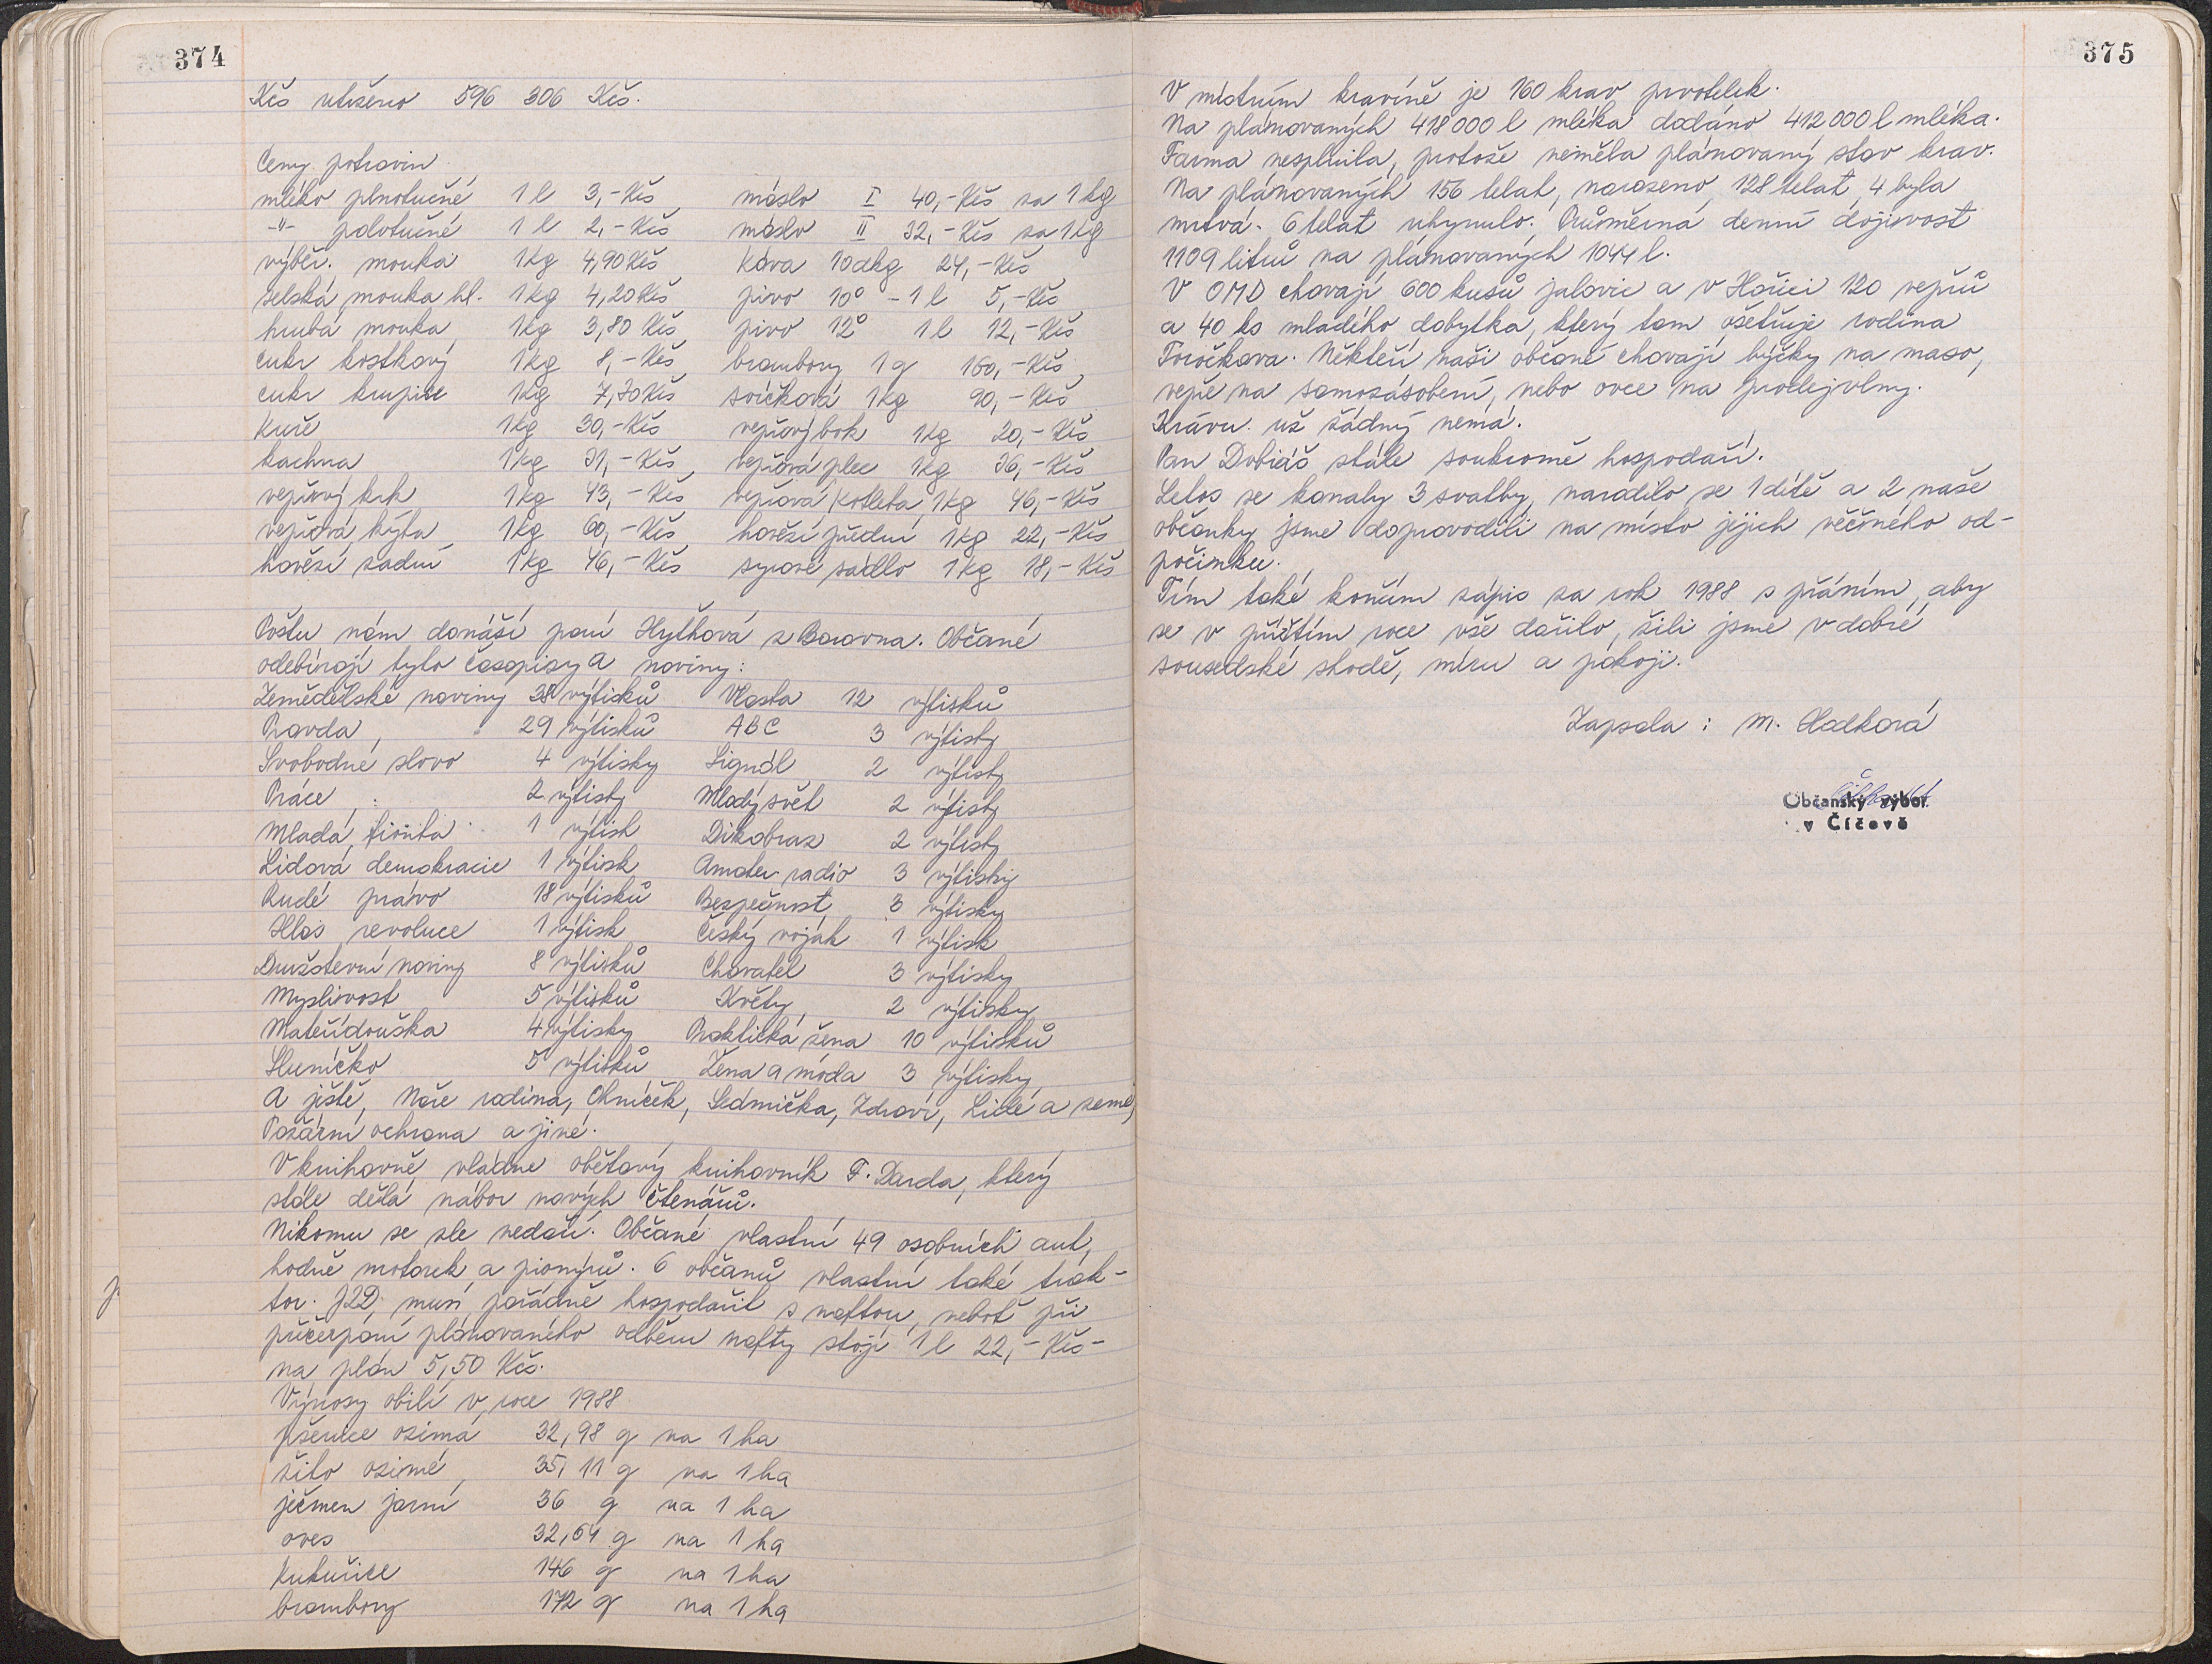 374
Kčs utrženo 596 306 Kčs.
Ceny potravin
mléko plnotučné 1 l 3,- Kčs máslo I 40,- Kčs za 1 kg
-"- polotučné 1 l 2,- Kčs máslo II 32,- Kčs za 1 kg
výběr. mouka 1 kg 4,90 Kčs Káva 10 dkg 24,- Kčs
selská mouka hl. 1 kg 4,20 Kčs pivo 10° - 1 l 5,- Kčs
hrubá mouka 1 kg 3,80 Kčs pivo 12° 1 l 12,- Kčs
cukr kostkový 1 kg 8,- Kčs brambory 1 q 160,- Kčs
cukr krupice 1 kg 7,30 Kčs svíčková 1 kg 90,- Kčs
Kuře 1 kg 30,- Kčs vepřový bok 1 kg 20,- Kčs
kachna 1 kg 31,- Kčs vepřová plec 1 kg 36,- Kčs
vepřový krk 1 kg 43,- Kčs vepřová kotleta 1 kg 46,- Kčs
vepřová kýta 1 kg 60,- Kčs hovězí přední 1 kg 22,- Kčs
hovězí zadní 1 kg 46,- Kčs syrové sádlo 1 kg 18,- Kčs
Poštu nám donáší paní Hyťhová z Borovna. Občané
odebírají tyto časopisy a noviny:
Zemědělské noviny 38 výtisků Vlasta 12 výtisků
Pravda 29 výtisků ABC 3 výtisky
Svobodné slovo 4 výtisky Signál 2 výtisky
Práce 2 výtisky Mladý svět 2 výtisky
Mladá fronta 1 výtisk Dikobraz 2 výtisky
Lidová demokracie 1 výtisk Amater. radio 3 výtisky
Rudé právo 18 výtisků Bezpečnost 3 výtisky
Hlas revoluce 1 výtisk Český voják 1 výtisk
Družstevní noviny 8 výtisků Chovatel 3 výtisky
Myslivost 5 výtisků Květy 2 výtisky
Mateřídouška 4 výtisky Praktická žena 10 výtisků
Sluníčko 5 výtisků Žena a móda 3 výtisky
A ještě, Naše rodina, Ohníček, Sedmička, Zdraví, Lidé a země,
Požární ochrana a jiné.
V knihovně vládne obětavý knihovník F. Darda, který
stále dělá nábor nových čtenářů.
Nikomu se zle nedaří. Občané vlastní 49 osobních aut,
hodně motorek a pionýrů. 6 občanů vlastní také trak-
tor. JZD musí pořádně hospodařit s naftou, neboť při
přičerpání plánovaného odběru nafty stojí 1 l 22,- Kčs -
na plán 5,50 Kčs.
Výnosy obilí v roce 1988
pšenice ozimá 32,98 q na 1 ha
žito ozimé 35,11 q na 1 ha
ječmen jarní 36 q na 1 ha
oves 32,64 q na 1 ha
Kukuřice 146 q na 1 ha
brambory 172 q na 1 ha
375
V místním kravíně je 160 krav prvotelek.
Na plánovaných 418 000 l mléka dodáno 412 000 l mléka.
Farma nesplnila, protože neměla plánovaný stav krav.
Na plánovaných 156 telat, narozeno 128 telat, 4 byla
mrtvá. 6 telat uhynulo. Průměrná denní dojivost
1109 litrů na plánovaných 1044 l.
V OMD chovají 600 kusů jalovic a v Hořici 120 vepřů
a 40 ks mladého dobytka, který tam ošetřuje rodina
Toročkova. Někteří naši občané chovají býčky na maso,
vepře na samozásobení, nebo ovce na prodej vlny.
Krávu už žádný nemá.
Pan Dobiáš stále soukromě hospodaří.
Letos se konaly 3 svatby, narodilo se 1 dítě a 2 naše
občanky jsme doprovodili na místo jejich věčného od-
počinku.
Tím také končím zápis za rok 1988 s přáním, aby
se v příštím roce vše dařilo, žili jsme v dobré
sousedské shodě, míru a pokoji.
Zapsala : M. Hodková
Občanský výbor
v Číčově